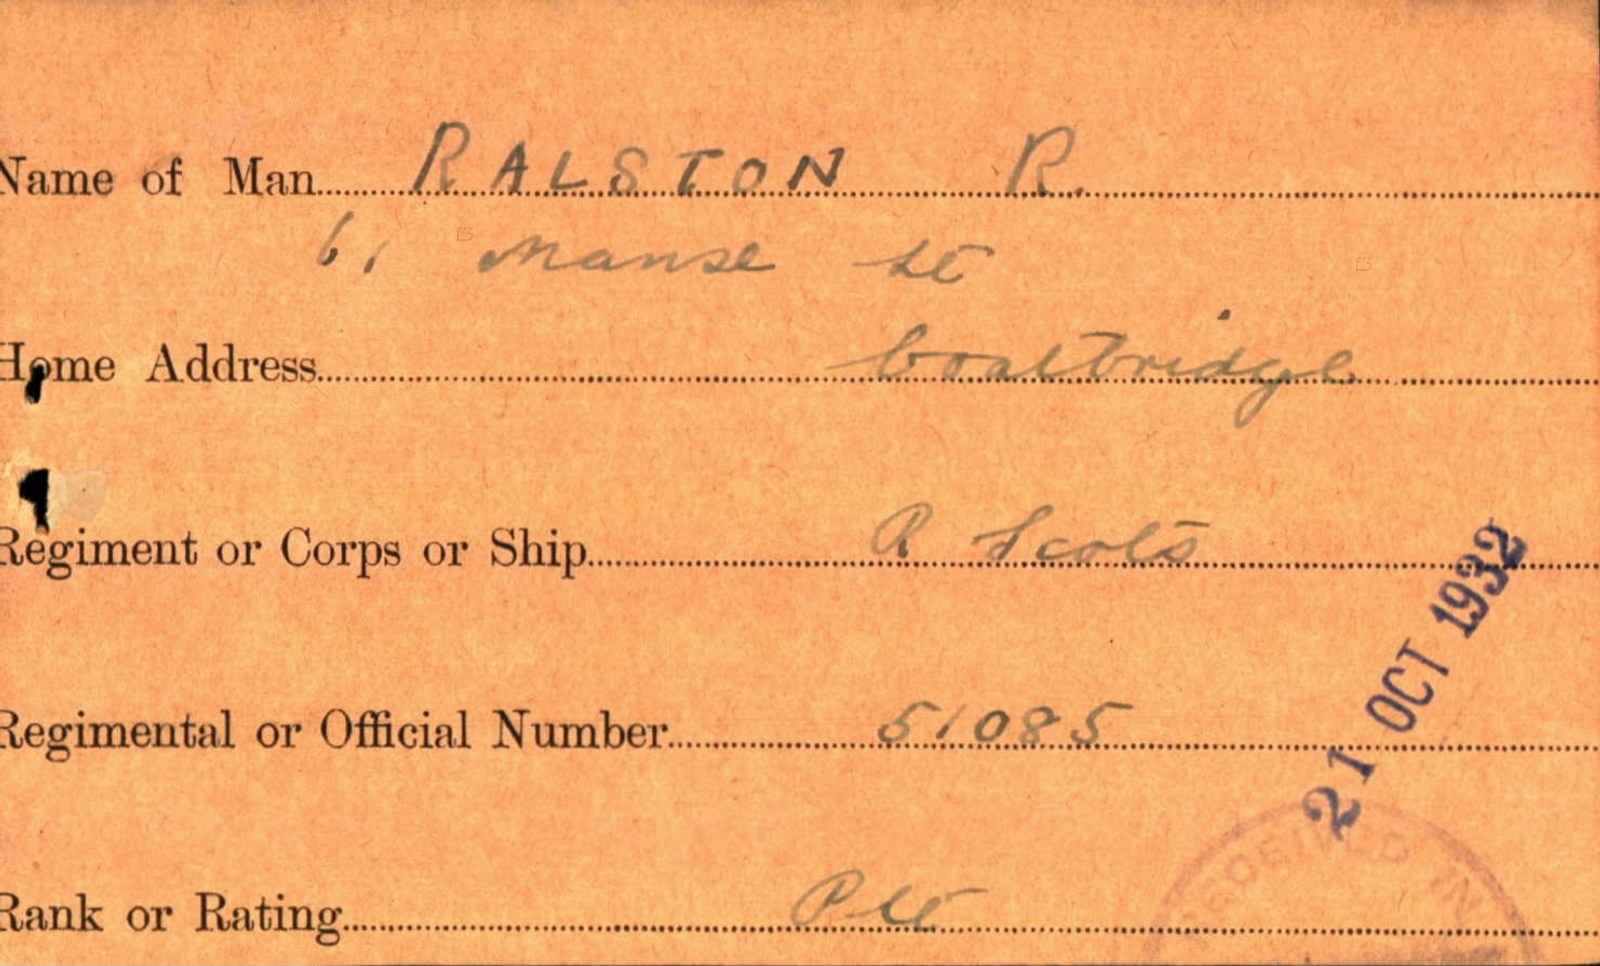 Name of Man RALSTON R.
61 Manse St
Home Address Coatbridge
Regiment or Corps or Ship R Scots
21 OCT 1932
Regimental or Official Number 51085
RECEIVED IN
Rank or Rating Pte